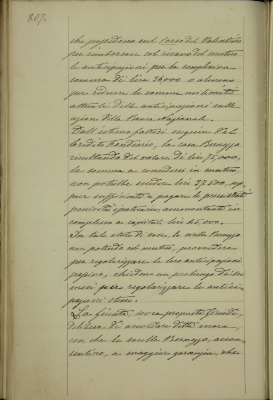 807.
che posseggono nel Corso del Valentino
per rimborsare col ricavo del mutuo
le anticipazioni per la complessiva
somma di lire 36,000 o almeno
per ridurre le somme nei limiti
attuali delle anticipazioni sulle
azioni della Banca Nazionale.
Dall'estimo fatto eseguire dal
Credito Fondiario, la casa Bonazzo
risultando del valore di lire 75,000,
la somma a concedersi in mutuo
non potrebbe eccedere lire 37,500, ap=
pena sufficiente a pagare le
passività ipotecarie, ammontanti in
complesso a capitali lire
In tale stato di cose, le sorelle
non potendo col mutuo, provvedere
per regolarizzare le loro anticipazioni
passive, chiedono un prolungo di
mesi per regolarizzare le antici=
pazioni stesse.
La Giunta, su proposta
delibera di accordare detta mora,
con che le sorelle accon=
sentino, a maggior garanzia, che